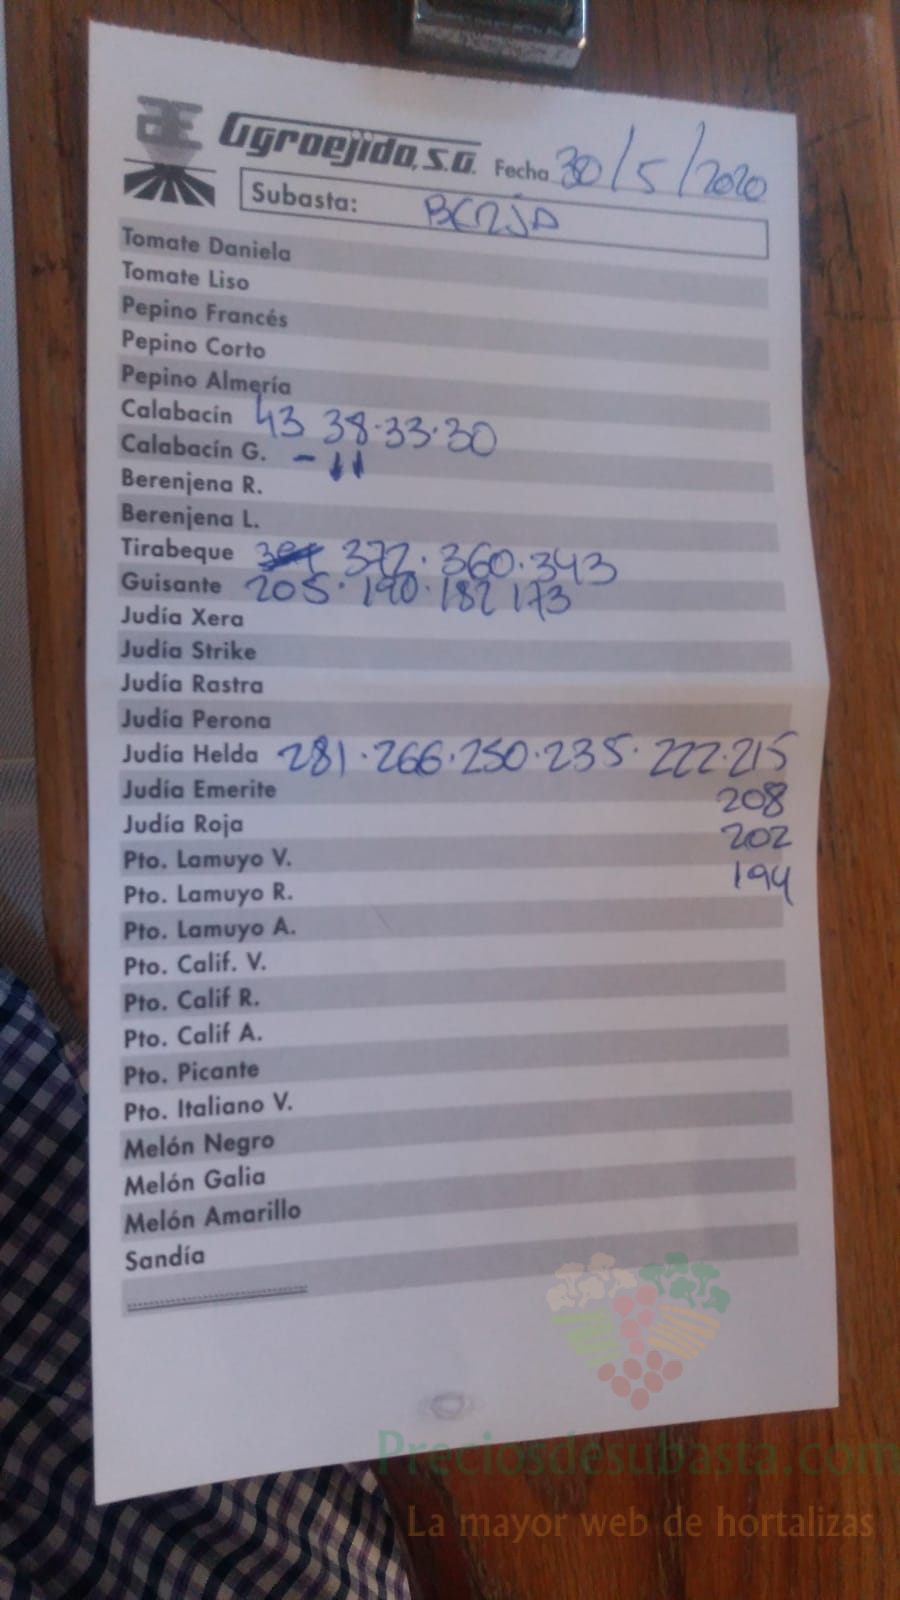 Agroejido, S.A. Fecha 30/5/2020
Subasta: BERJA
Tomate Daniela
Tomate Liso
Pepino Francés
Pepino Corto
Pepino Almería
Calabacín 43 38·33·30
Calabacín G. -
Berenjena R.
Berenjena L.
Tirabeque 372·360·343
Guisante 205·190·182 173
Judía Xera
Judía Strike
Judía Rastra
Judía Perona
Judía Helda 281·266·250·235·222·215
Judía Emerite 208
Judía Roja 202
Pto. Lamuyo V. 194
Pto. Lamuyo R.
Pto. Lamuyo A.
Pto. Calif. V.
Pto. Calif R.
Pto. Calif A.
Pto. Picante
Pto. Italiano V.
Melón Negro
Melón Galia
Melón Amarillo
Sandía
Preciosdesubasta.com
La mayor web de hortalizas